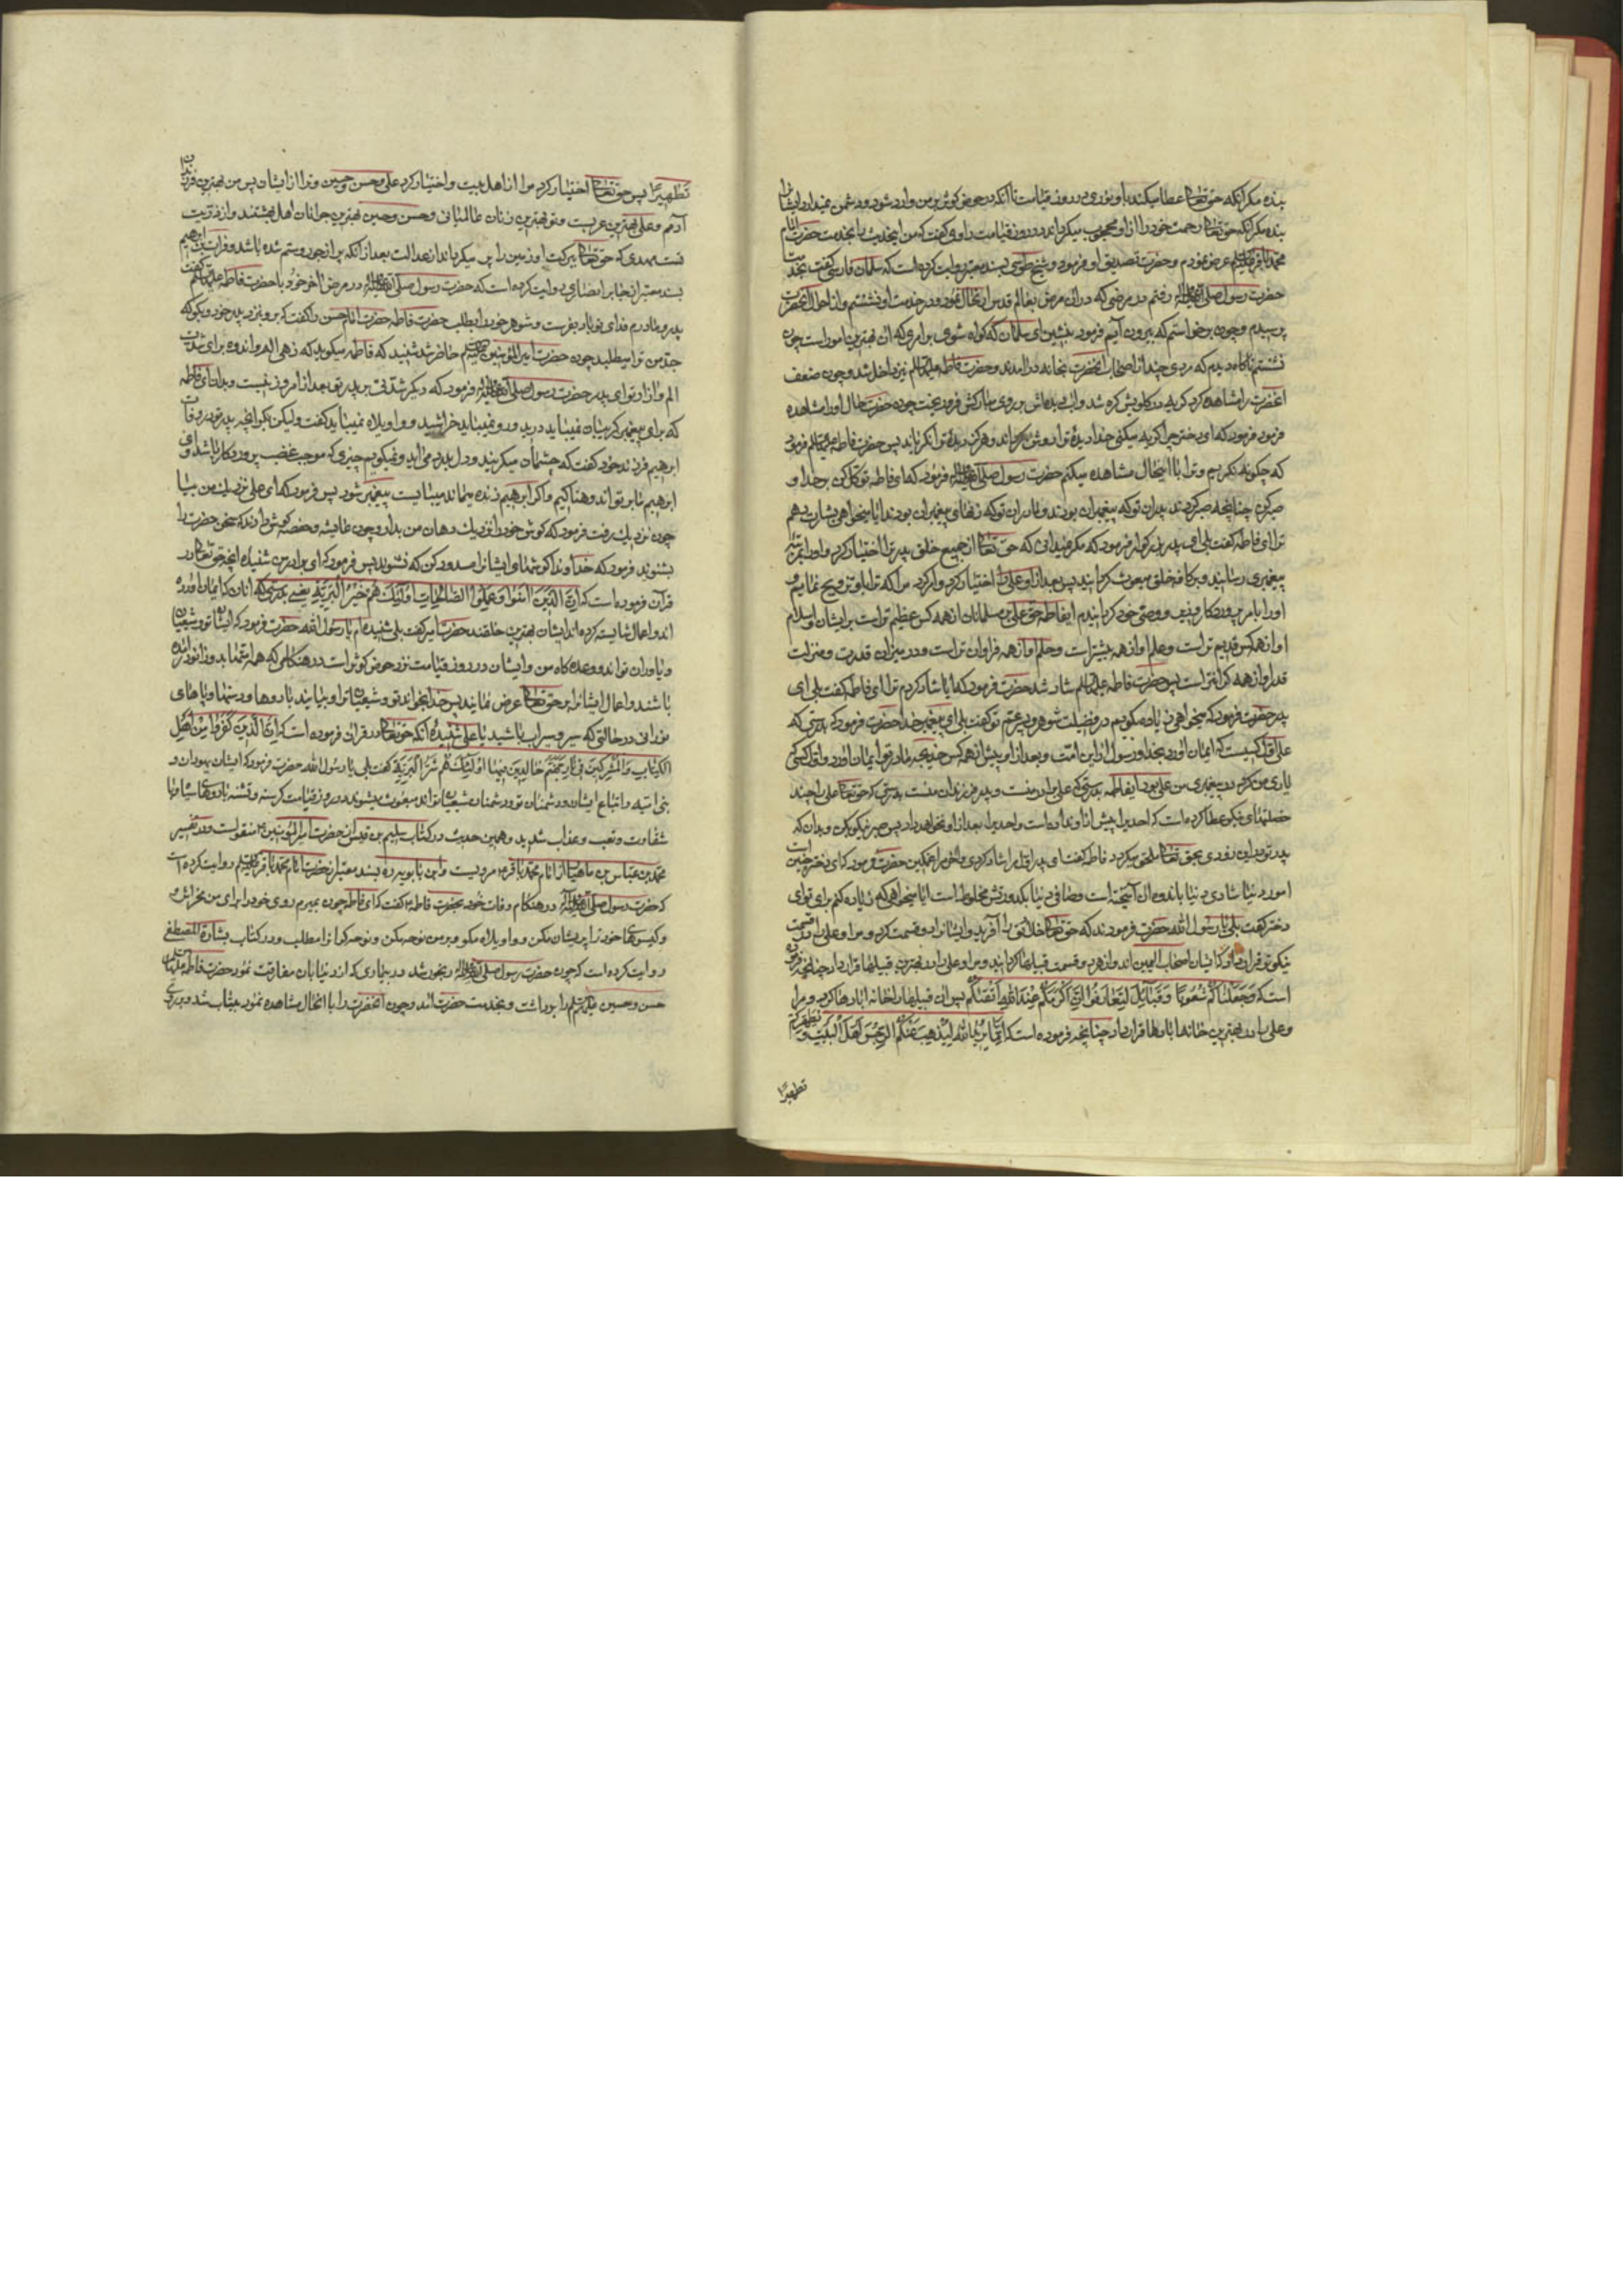 بنده مکر انکه حق تعالی عطا میکند باو نوری در روز قیامت تا انکه در حوض کوثر بر من وارد شود و دشمن نمیدارد ایشانرا
بنده مکر انکه حق تعالی رحمت خود را از او محجوب میکرداند در روز قیامت راوی کفت که من اینحدیث را بخدمت حضرت امام
محمد باقر علیه السلام عرض نمودم و حضرت تصدیق او فرمود و شیخ طوسی بسند معتبر روایت کرده است که سلمان فارسی کفت بخدمت
حضرت رسول صلی الله علیه واله رفتم در مرضی که در ان مرض بعالم قدس ارتحال نمود و در خدمت او نشستم و از احوال انحضرت
پرسیدم و چون برخواستم که بیرون آیم فرمود بنشین ای سلمان که کواه شوی بر امری که ان بهترین امور است چون
نشستم ناکاه دیدم که مردی چند از اصحاب انحضرت بخانه در امدند و حضرت فاطمه علیها السلام نیز داخل شد و چون ضعف
انحضرت را مشاهده کرد کریه در کلویش کره شد و اب دیده اش بر روی مبارکش فرو ریخت چون حضرت حال او را مشاهده
فرمود فرمود که ای دختر چرا کریه میکنی خدا دیدهٔ ترا روشن کرداند و هرکز دیدهٔ ترا نکریاند پس حضرت فاطمه علیها السلام فرمود
که چکونه نکریم و ترا باین حال مشاهده میکنم حضرت رسول صلی الله علیه واله فرمود که ای فاطمه توکل کن بر خدا و
صبر کن چنانچه صبر کردند پدران تو که پیغمبران بودند و مادران تو که زنهای پیغمبران بودند ایا میخواهی بشارت دهم
ترا ای فاطمه کفت بلی ای پدر بزرکوار فرمود که مکر نمیدانی که حق تعالی از جمیع خلق پدر ترا اختیار کرد و او را بمرتبه
پیغمبری رسانید و بر کافه خلق مبعوث کردانید پس بعد از او علی را اختیار کرد و امر کرد مرا که ترا باو تزویج نمایم و
او را بامر پروردکار وزیر و وصی خود کردانیدم ای فاطمه حق علی بر مسلمانان از همه کس عظیم تر است بر ایشان و اسلام
او از همه کس قدیم تر است و علم او از همه بیشتر است و حلم او از همه فراوان تر است و در میزان قدرت و منزلت
قدر او از همه کرانتر است پس حضرت فاطمه علیها السلام شاد شد حضرت فرمود که ایا شاد کردم ترا ای فاطمه کفت بلی ای
پدر حضرت فرمود که میخواهی زیاده بکویم در فضیلت شوهر و پسر عم تو کفت بلی ای پیغمبر خدا حضرت فرمود که بدرستی که
علی اول کسیست که ایمان اورد بخدا و رسول از این امت و بعد از او پیش از همه کس خدیجه مادر تو ایمان اورد و اول کسی که
یاری من کرد در پیغمبری من علی بود ای فاطمه بدرستی که علی برادر منست و پدر فرزندان منست بدرستی که حق تعالی علی را چند
خصلتهای نیکو عطا کرده است که احدیرا پیش از او نداده است و احدیرا بعد از او نخواهد داد پس صبر نیکو بکن و بدان که
پدر تو در این زودی بحق تعالی ملحق میکردد فاطمه کفت ای پدر اول مرا شاد کردی و اخر مرا غمکین حضرت فرمود که ای دختر چنین است
امور دنیا شادی دنیا باندوه ان آمیخته است و صافی دنیا بکدورتش مخلوط است ایا میخواهی که زیاده کنم برای تو ای
دختر کفت بلی یا رسول الله حضرت فرمودند که حق تعالی خلایق را آفرید و ایشانرا دو قسمت کرد و من و علی را در قسمت
نیکوتر قرار داد که ایشان اصحاب الیمین اند و از هر دو قسمت قبیلها کردانید و من و علی را در بهترین قبیلها قرار داد چنانچه فرموده
است که وَجَعَلْنَاکُمْ شُعُوبًا وَقَبَائِلَ لِتَعَارَفُوا اِنَّ اَکْرَمَکُمْ عِنْدَ اللّٰهِ اَتْقٰیکُمْ پس ان قبیلها را خانه ابادها کرد و مرا
و علی را در بهترین خانه ابادها قرار داد چنانچه فرموده است که اِنَّمَا یُرِیدُ اللّٰهُ لِیُذْهِبَ عَنْکُمُ الرِّجْسَ اَهْلَ الْبَیْتِ وَ یُطَهِّرَکُمْ
تطهیرًا
تَطْهِیرًا پس حق تعالی اختیار کرد مرا از اهل بیت و اختیار کرد علی و حسن و حسین و ترا از ایشان پس من بهترین فرزندان
آدمم و علی بهترین عربست و تو بهترین زنان عالمیانی و حسن و حسین بهترین جوانان اهل بهشتند و از ذریت
تست مهدی که حق تعالی ببرکت او زمین را پر میکرداند از عدالت بعد از انکه پر از جور و ستم شده باشد و فرات بن ابراهیم
بسند معتبر از جابر انصاری روایت کرده است که حضرت رسول صلی الله علیه واله در مرض اخر خود با حضرت فاطمه علیها السلام کفت
پدر و مادرم فدای تو باد بفرست و شوهر خود را بطلب حضرت فاطمه حضرت امام حسن را کفت که برو بنزد پدر خود و بکو که
جد من ترا میطلبد چون حضرت امیر المؤمنین علیه السلام حاضر شد شنید که فاطمه میکوید که زهی الم و اندوه برای شدت
الم و ازار تو ای پدر حضرت رسول صلی الله علیه واله فرمود که دیکر شدتی بر پدر تو بعد از امروز نیست و بدان ای فاطمه
که برای پیغمبر کریبان نمیباید درید و رو نمیباید خراشید و واویلاه نمیباید کفت ولیکن بکو انچه پدر تو در وفات
ابرهیم فرزند خود کفت که چشمان میکریند و دل بدرد می آید و نمیکویم چیزی که موجب غضب پروردکار باشد و ای
ابرهیم ما بر تو اندوهناکیم و اکر ابرهیم زنده میماند میبایست پیغمبر شود پس فرمود که ای علی نزدیک من بیا
چون نزدیک رفت فرمود که کوش خود را نزدیک دهان من بدار و چون عایشه و حفصه کوش دادند که سخن حضرت را
بشنوند فرمود که خداوندا کوشهای ایشانرا مسدود کن که نشنوند پس فرمود که ای برادر من شنیدهٔ انچه حق تعالی در
قرآن فرموده است که اِنَّ الَّذِینَ اٰمَنُوا وَ عَمِلُوا الصَّالِحَاتِ اُولٰئِکَ هُمْ خَیْرُ الْبَرِیَّةِ یعنی بدرستی که انان که ایمان اورده
اند و اعمال شایسته کرده اند ایشان بهترین خلقند حضرت امیر کفت بلی شنیده ام یا رسول الله حضرت فرمود که ایشان تو و شیعیان
و یاوران تو اند و وعده کاه من و ایشان در روز قیامت نزد حوض کوثر است در هنکامی که همه امتها بدو زانو درآمده
باشند و اعمال ایشانرا بر حق تعالی عرض نمایند پس خدا بخواند تو و شیعیان ترا و بیایند با روها و دستها و پاهای
نورانی در حالتی که سیر و سیراب باشید یا علی شنیدهٔ انکه حق تعالی در قران فرموده است که اِنَّ الَّذِینَ کَفَرُوا مِنْ اَهْلِ
الْکِتَابِ وَ الْمُشْرِکِینَ فِی نَارِ جَهَنَّمَ خَالِدِینَ فِیهَا اُولٰئِکَ هُمْ شَرُّ الْبَرِیَّةِ کفت بلی یا رسول الله حضرت فرمود که ایشان یهودان و
بنی امیه و اتباع ایشان و دشمنان تو و دشمنان شیعیان تو اند مبعوث میشوند در روز قیامت کرسنه و تشنه با روهای سیاه و با
شقاوت و تعب و عذاب شدید و همین حدیث در کتاب سلیم بن قیس از حضرت امیر المؤمنین منقولست و در تفسیر
محمد بن عباس بن ماهیار از امام محمد باقر مرویست و ابن بابویه بسند معتبر از حضرت امام محمد باقر علیه السلام روایت کرده است
که حضرت رسول صلی الله علیه واله در هنکام وفات خود بحضرت فاطمه کفت که ای فاطمه چون بمیرم روی خود را برای من مخراش و
کیسوهای خود را پریشان مکن و واویلاه مکو و بر من نوحه مکن و نوحه کران را مطلب و در کتاب بشارة المصطفی
روایت کرده است که چون حضرت رسول صلی الله علیه واله رنجور شد در بیماری که از دنیا بان مفارقت نمود حضرت فاطمه علیها السلام
حسن و حسین علیهما السلام را برداشت و بخدمت حضرت امد و چون انحضرت را با انحال مشاهده نمود بیتاب شد و بر روی